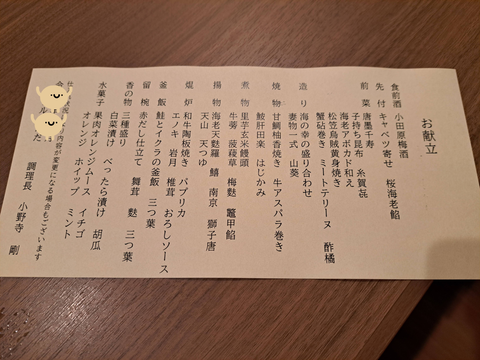 お献立
食前酒 小田原梅酒
先付 キャベツ寄せ 桜海老餡
前菜 唐墨千寿
子持ち昆布 糸賀㐂
海老アボカド和え
松笠烏賊黄身焼き
蟹砧巻き ミートテリーヌ 酢橘
造り 海の幸の盛り合わせ
妻物一式 山葵
焼物 甘鯛柚香焼き 牛アスパラ巻き
鮟肝田楽 はじかみ
煮物 里芋玄米饅頭
牛蒡 菠薐草 梅麩 鼈甲餡
揚物 海老天麩羅 鱚 南京 獅子唐
天山 天つゆ
焜炉 和牛陶板焼き パプリカ
エノキ 岩月 椎茸 おろしソース
釜飯 鮭とイクラの釜飯 三つ葉
留椀 赤だし仕立て 舞茸 麩 三つ葉
香の物 三種盛り
白菜漬け べったら漬け 胡瓜
水菓子 果肉オレンジムース イチゴ
オレンジ ホイップ ミント
内容が変更になる場合もございます
調理長 小野寺 剛